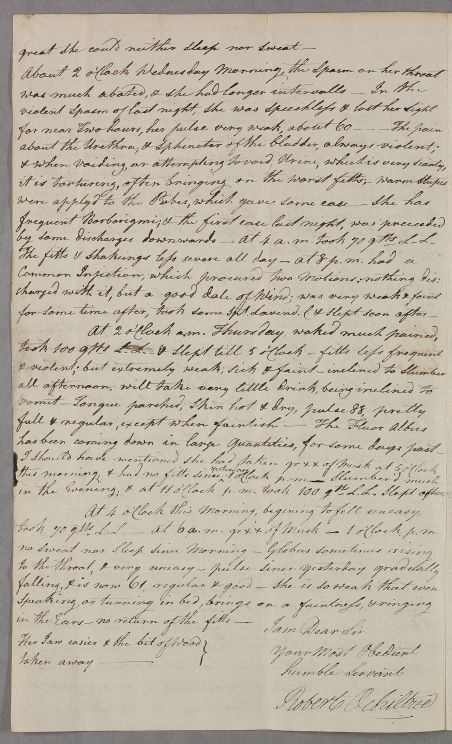 great she could neither Sleep nor sweat —
About 2 oClock Wednesday Morning, the Spasm on her throat
was much abated, & she had longer intervalls — In the
violent Spasm of last night, she was Speechless & lost her Sight
for near Two hours, her pulse very weak, about 60 — The pain
about the Urethra, & Sphincter of the bladder, always violent;
& when voiding, or attempting to void Urine, which is very scanty,
it is torturing, often bringing on the worst fitts, — warm Stupes
were apply'd to the Pubes, which gave some ease — She has
frequent Borborigmi, & the first ease last night, was preceeded
by some discharges downwards — at 4 a.m. took 70 gtts L.L.
The fitts & Shakeings less severe all day — at 8 p.m. had a
Common Injection, which procured two Motions; nothing dis:
charged with it, but a good dale of Wind; was very weak & faint
for some time after, took some Spt Lavend. C & Slept soon after —
At 2 oClock a.m. Thursday, waked much pained,
took 100 gtts L.L. & Slept till 5 oClock — fitts less frequent
& violent; but extremely weak, sick & faint — inclined to Slumber
all afternoon; will take very little drink, being inclined to
vomit — Tongue parched, Skin hot & dry, pulse 88, pretty
full & regular, except when faintish — The Fluor Albus
has been coming down in large Quantities, for some days past —
I should have mentioned she had taken gr xx of Musk at 5 oClock
this morning, & had no fitts since 1 oClock p.m — Slumber'd much
in the Evening, & at 11 oClock p.m. took 100 gtts L.L. Slept after.
At 4 oClock this Morning, begining to fell uneasy
took 70 gtts L.L. — at 6 a.m. gr xx of Musk — 1 oClock p.m.
no sweat nor Sleep since Morning — Globus sometimes rising
to the throat, & very uneasy — pulse since yesterday gradually
falling, & is now 61, regular & good — She is so weak that even
Speaking, or turning in bed, brings on a faintness, & ringing
in the Ears — no return of the fitts —
Her Jaw easier & the bit of Wood }
taken away —
I am Dear Sir
Your Most Obedient
humble Servant
Robert Ochiltree